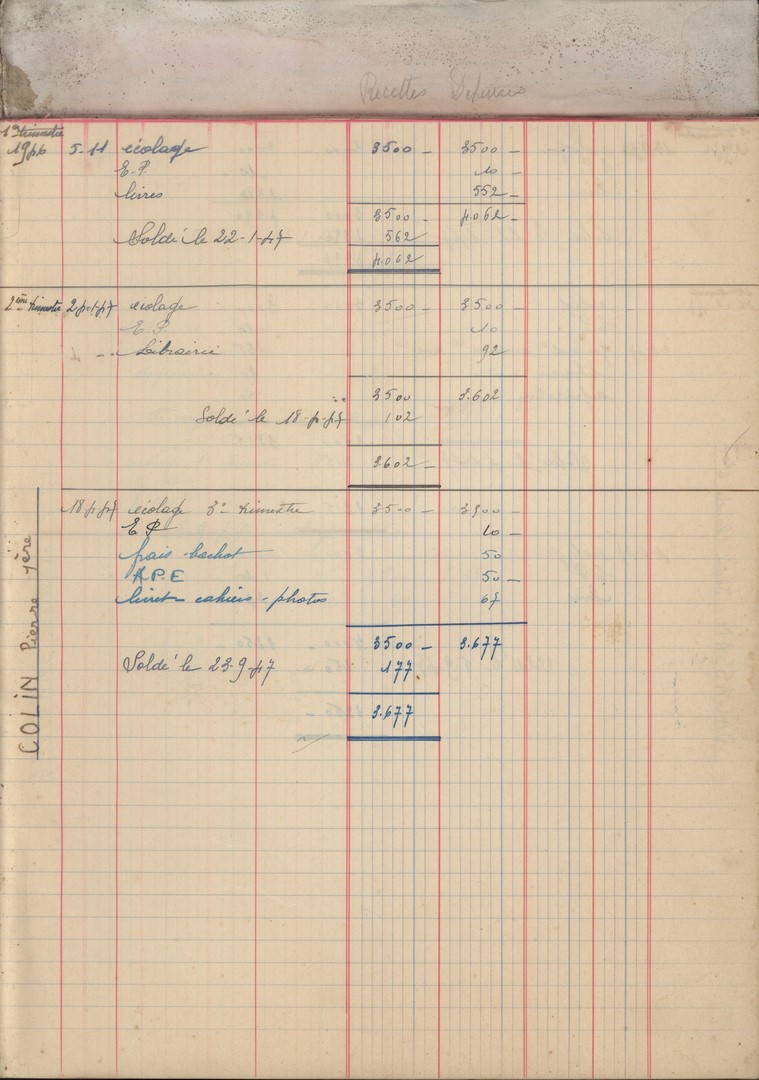 Recettes Dépenses
1er trimestre
1946 5-11 écolage 3500 - 3500 -
E.P. 10 -
livres 552 -
3500 - 4.062 -
Soldé le 22-1-47 562
4.062
2ème trimestre 24-1-47 écolage 3500 - 3500 -
E.P. 10
Librairie 92
3500 3.602
Soldé le 18-4-47 102
3602 -
18-4-47 écolage 3e trimestre 3500 - 3500 -
E P 10 -
frais bachot 50
A.P.E 50 -
livret - cahiers - photos 67
3500 - 3.677
Soldé le 23-9-47 177
3.677
COLIN Pierre 1ère